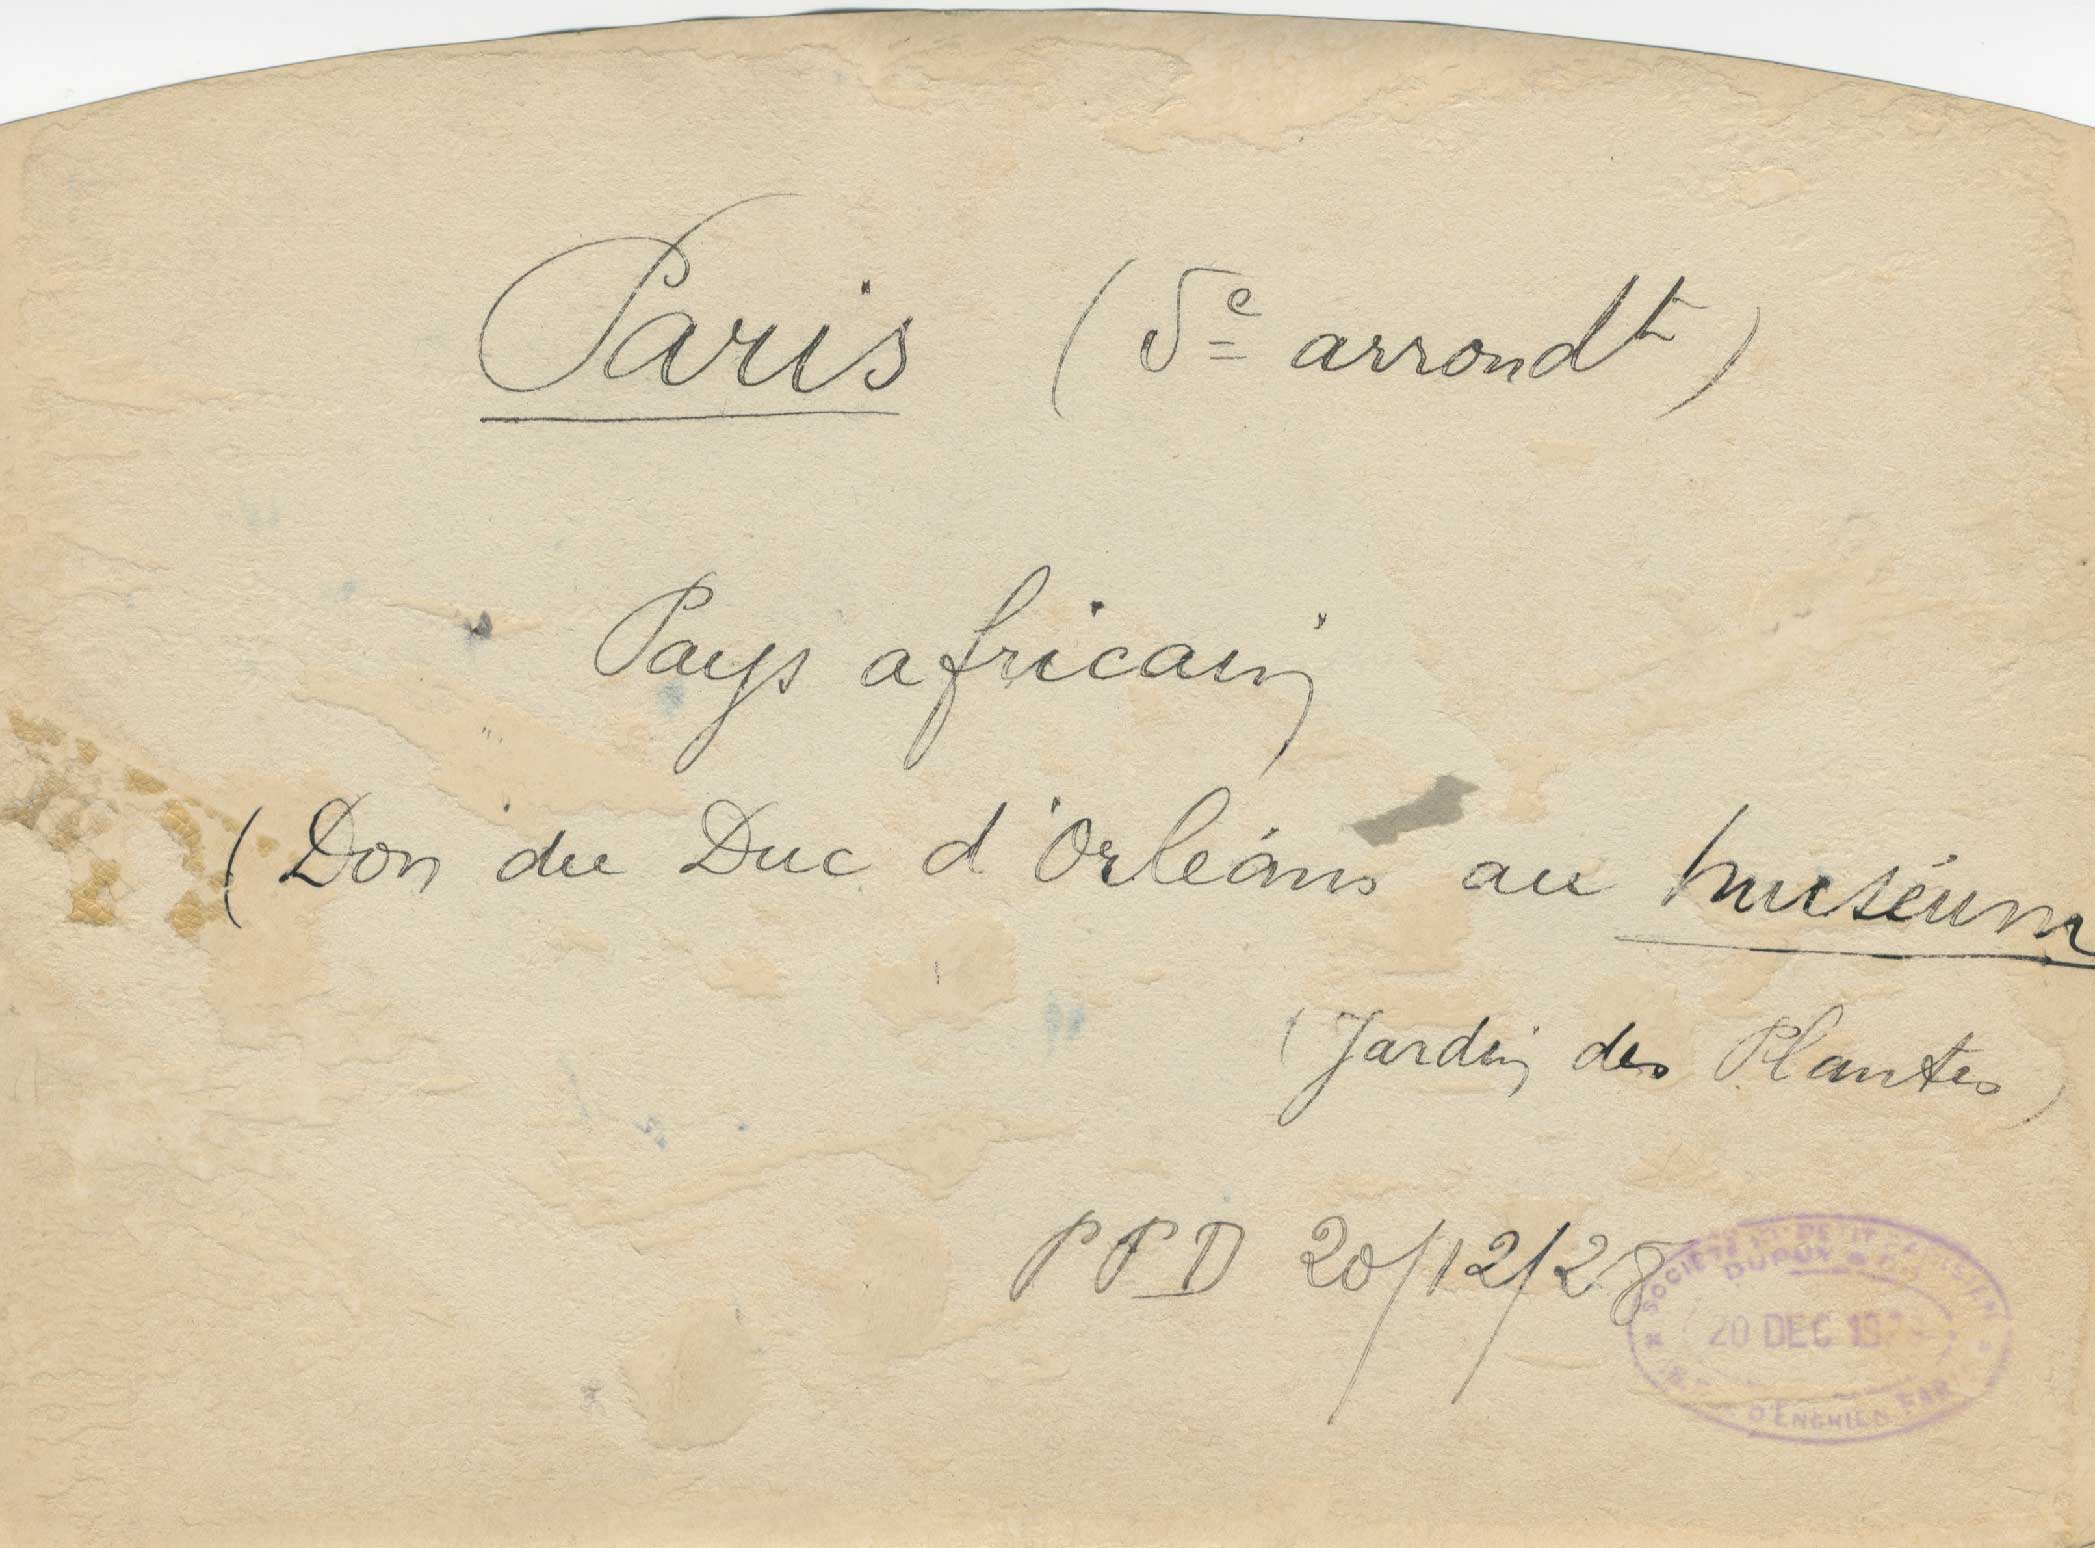 Paris (5e arrondt)
Pays africain
(Don du Duc d'Orléans au Muséum
(Jardin des Plantes)
PPD 20/12/28
SOCIÉTÉ DU PETIT PARISIEN
DUPUY &
20 DEC 192
D'ENGHIEN PARIS